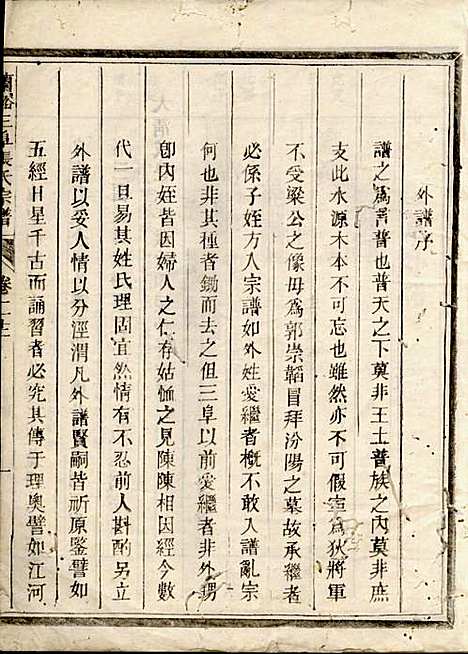 外譜序
譜之爲言普也普天之下莫非王土普族之內莫非庶
支此水源木本不可忘也雖然亦不可假寧爲狄將軍
不受梁公之像毋爲郭崇韜冒拜汾陽之墓故承繼者
必係子姪方入宗譜如外姓愛繼者槪不敢入譜亂宗
何也非其種者鋤而去之但三阜以前愛繼者非外甥
卽內姪皆因婦人之仁存姑恤之見陳陳相因經今數
代一旦易其姓氏理固宜然情有不忍前人斟酌另立
外譜以妥人情以分涇渭凡外譜賢嗣皆祈原鑒譬如
五經日星千古而誦習者必究其傳于理奧譬如江河
張氏宗譜
卷